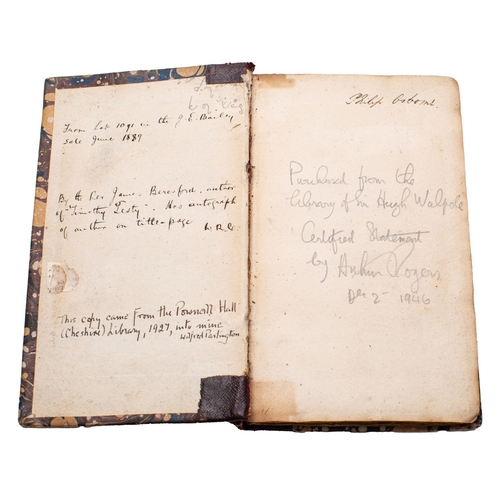 From Lot 1091 in the J. E. Bailey
sale June 1889
By the Rev James Beresford, author
of "Timothy Testy". Has autograph
of author on title-page
This copy came from the Pownall Hall
(Cheshire) Library, 1927, into mine
Wilfred Partington
Philip Osborne.
Purchased from the
Library of Sir Hugh Walpole
Certified Statement
by Arthur Rogers
Dec 2 - 1946